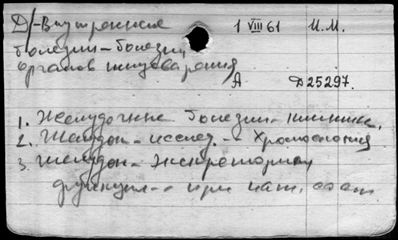 Д/-Внутренние 1 VIII 61 И.М.
болезни - болезни
органов пищеварения
А Д25297.
1. Желудочные болезни - клиника.
2. Желудок - исслед. - Хромоскопия
3. Желудок - Экскреторная
функция - при пат. сост